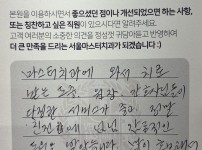 본원을 이용하시면서 좋으셨던 점이나 개선되었으면 하는 사항,
또는 칭찬하고 싶은 직원이 있으시다면 말씀해주세요.
고객 여러분의 소중한 의견을 정성껏 귀담아듣고 반영하여
더 큰 만족을 드리는 서울마스터치과가 되겠습니다 :)
마스터치과에 와서 치료
받는 도중 원장, 간호사님들이
다정한 서비스가 좋고, 정말
친절함에